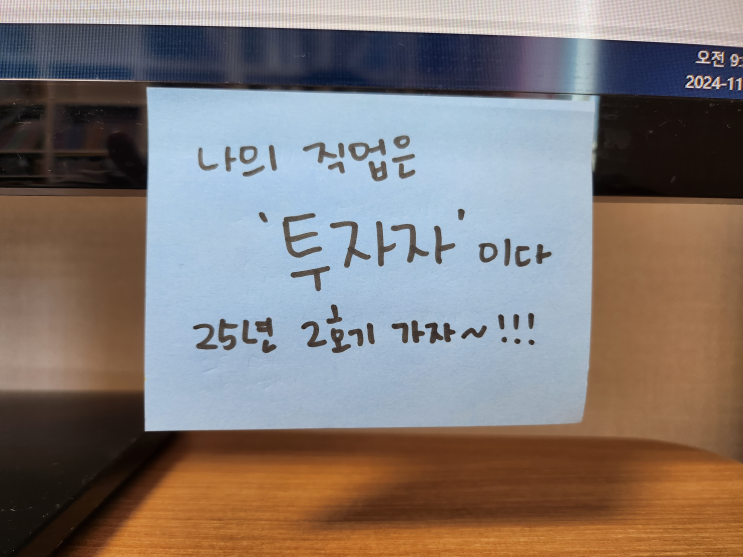 오전 9:
2024-11
나의 직업은
'투자자'이다
25년 2호기 가자~!!!